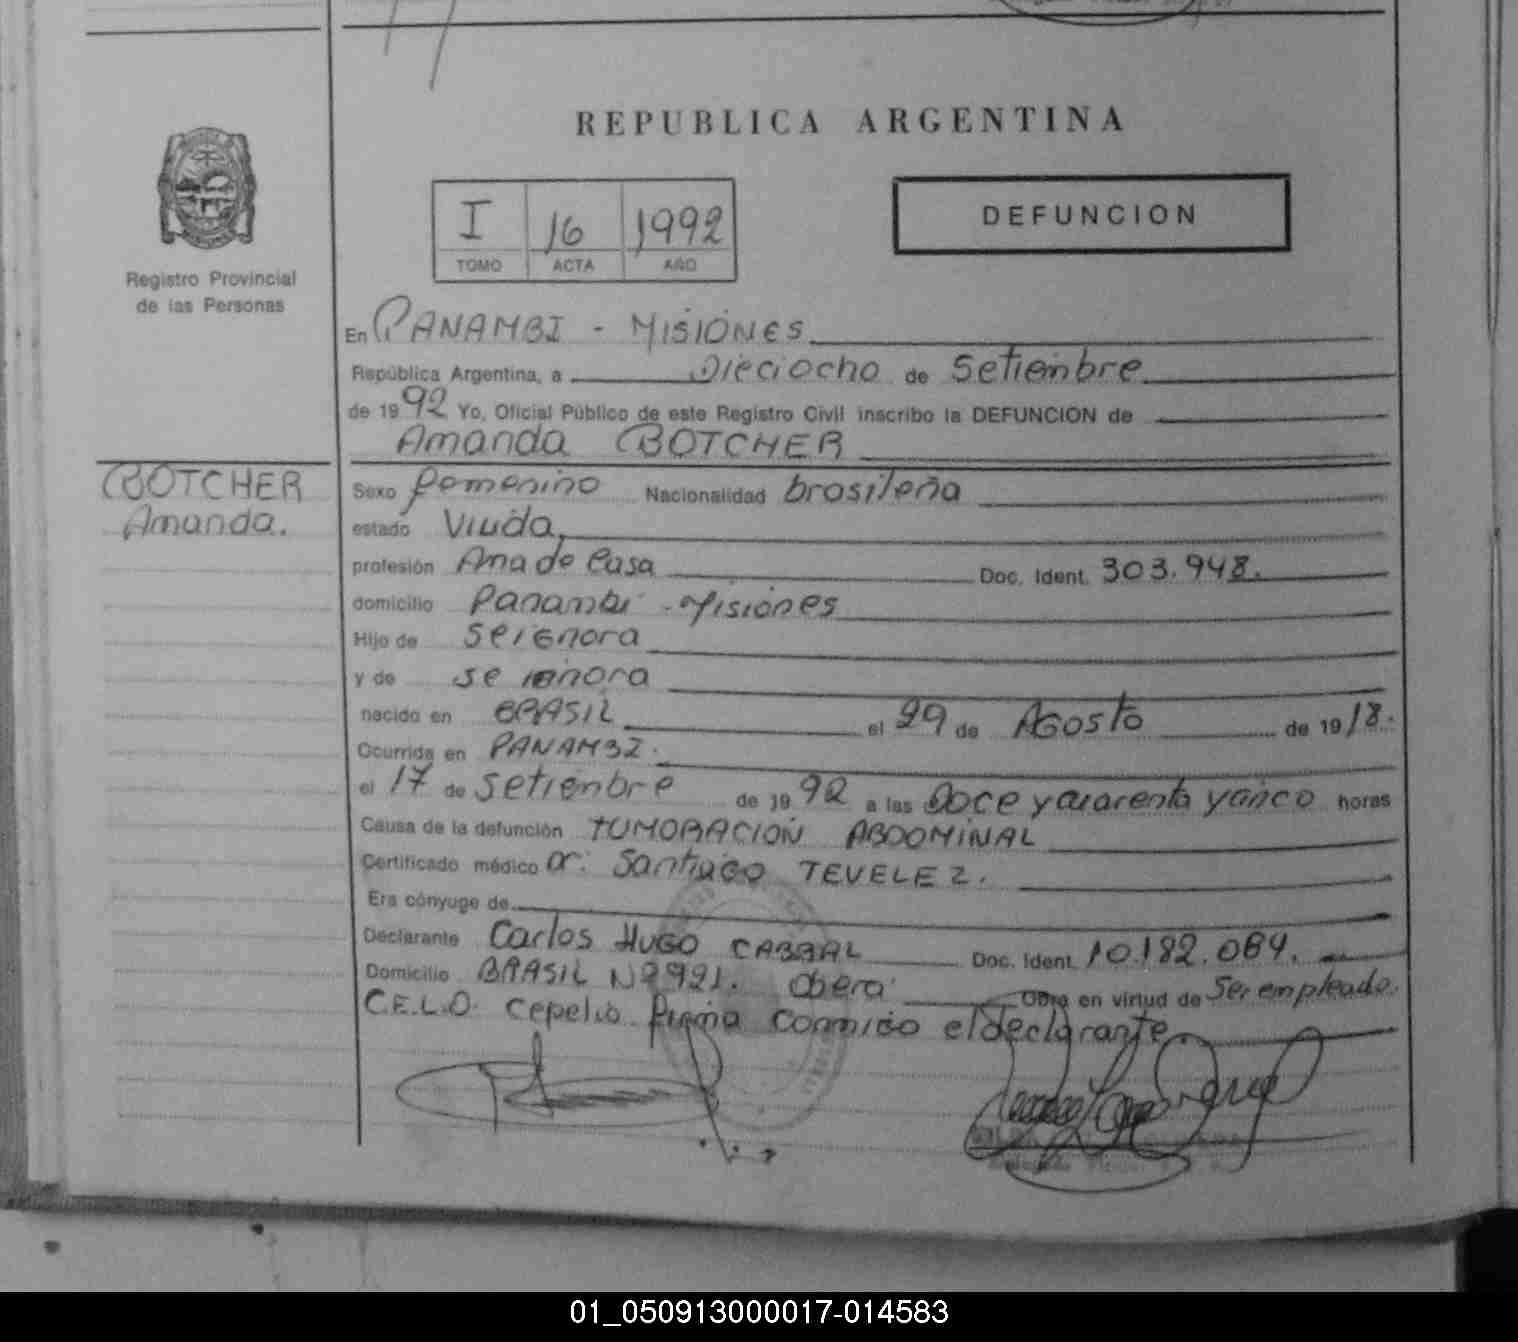 REPUBLICA ARGENTINA
I 16 1992
TOMO ACTA AÑO
DEFUNCION
Registro Provincial
de las Personas
En PANAMBI - MISIONES
República Argentina, a Dieciocho de Setiembre
de 1992 Yo, Oficial Público de este Registro Civil inscribo la DEFUNCION de
Amanda BOTCHER
BOTCHER
Amanda.
Sexo femenino Nacionalidad brasileña
estado Viuda,
profesión Ama de Casa Doc. Ident. 303.948.
domicilio Panambi - Misiones
Hijo de se ignora
y de se ignora
nacido en BRASIL el 29 de AGosto de 1918.
Ocurrida en PANAMBI.
el 17 de Setiembre de 1992 a las Doce y cuarenta y cinco horas
Causa de la defunción TUMORACION ABDOMINAL
Certificado médico Dr: Santiago TEVELEZ.
Era cónyuge de
Declarante Carlos HUGO CABRAL Doc. Ident. 10.182.084.
Domicilio BRASIL Nº 921. Obera Obra en virtud de Ser empleado
C.E.L.O. Cepelio firma conmigo el declarante
01_050913000017-014583